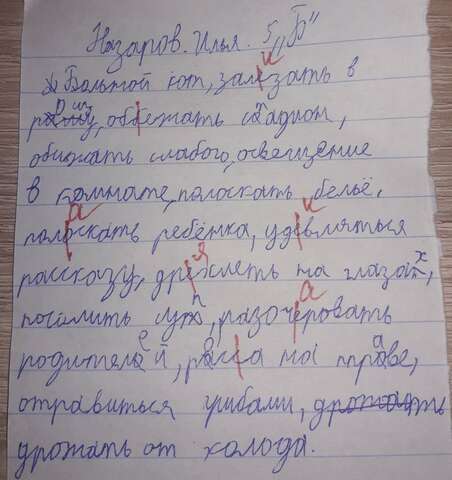 Назаров. Илья. 5 „Б"
Большой кот, залезать в
рощу, оббежать стадион,
обижать слабого, освещение
в комнате, полоскать бельё,
полоскать ребёнка, удевляться
рассказу, дремлеть на глазах,
посолить суп, разочеровать
родителей, расса на праве,
отравиться грибами,
дрожать от холода.